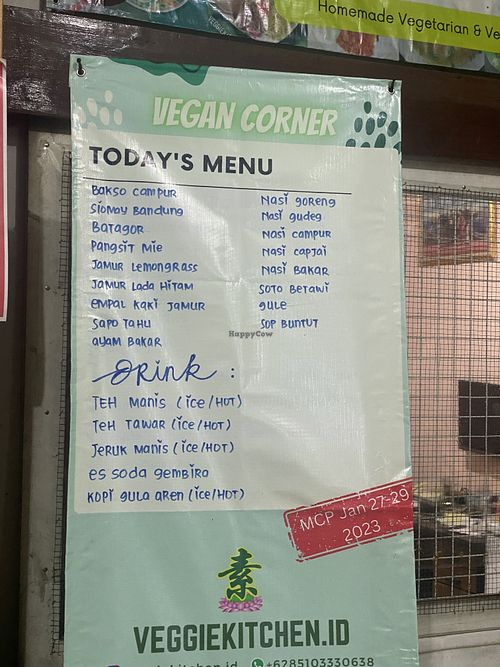 Homemade Vegetarian & Ve
VEGAN CORNER
TODAY'S MENU
Bakso campur
Siomay Bandung
Batagor
Pangsit Mie
Jamur Lemongrass
Jamur Lada Hitam
Empal kaki Jamur
Sapo Tahu
Ayam Bakar
Nasi goreng
Nasi gudeg
Nasi campur
Nasi capjai
Nasi Bakar
Soto Betawi
gule
Sop Buntut
HappyCow
Drink :
Teh Manis (ice/HOT)
Teh Tawar (ice/HOT)
Jeruk Manis (ice/HOT)
es soda gembira
Kopi gula aren (ice/HOT)
MCP Jan 27-29
2023
素
VEGGIEKITCHEN.ID
kitchen.id
+6285103330638